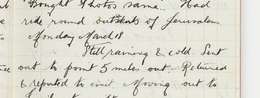 Bought Photos same. Had
ride round outskirts of Jerusalem
Monday March 18
Still raining & cold. Sent
out to point 5 miles out. Returned
& reported to unit. Moving out to